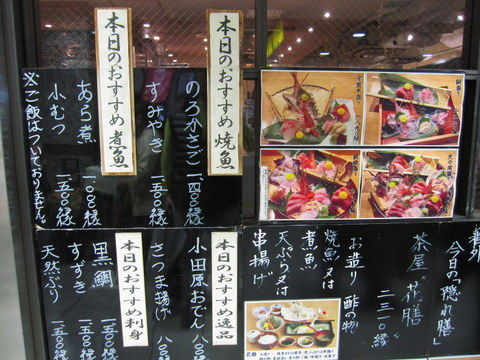 本日のおすすめ焼魚
のろかさご 一、四〇〇縁
すみやき 一、五〇〇縁
本日のおすすめ煮魚
あら煮 一、〇〇〇縁
小むつ 一、五〇〇縁
※ご飯はついておりません。
番外
今日の「隠れ膳」
茶屋“花膳”
二三一〇縁
お造り 酢の物
焼魚 又は
煮魚
天ぷら又は
串揚げ
花膳
本日のおすすめ逸品
小田原おでん 八〇
さつま揚げ 八〇
本日のおすすめ刺身
黒鯛 一、五〇〇縁
すずき 一、五〇〇縁
天然ぶり 一、五